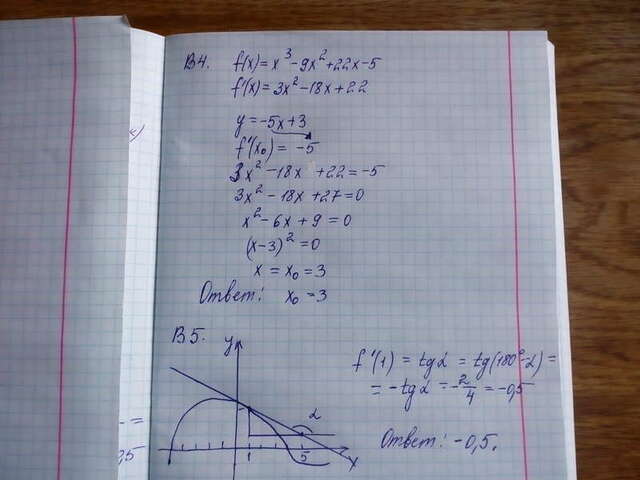 В4. f(x) = x³ - 9x² + 22x - 5
f'(x) = 3x² - 18x + 22
y = -5x + 3
f'(x₀) = -5
3x² - 18x + 22 = -5
3x² - 18x + 27 = 0
x² - 6x + 9 = 0
(x-3)² = 0
x = x₀ = 3
Ответ: x₀ = 3
В5.
y
α
1 5 x
f'(1) = tgα = tg(180°-α) =
= -tgα = -2/4 = -0,5
Ответ: -0,5.